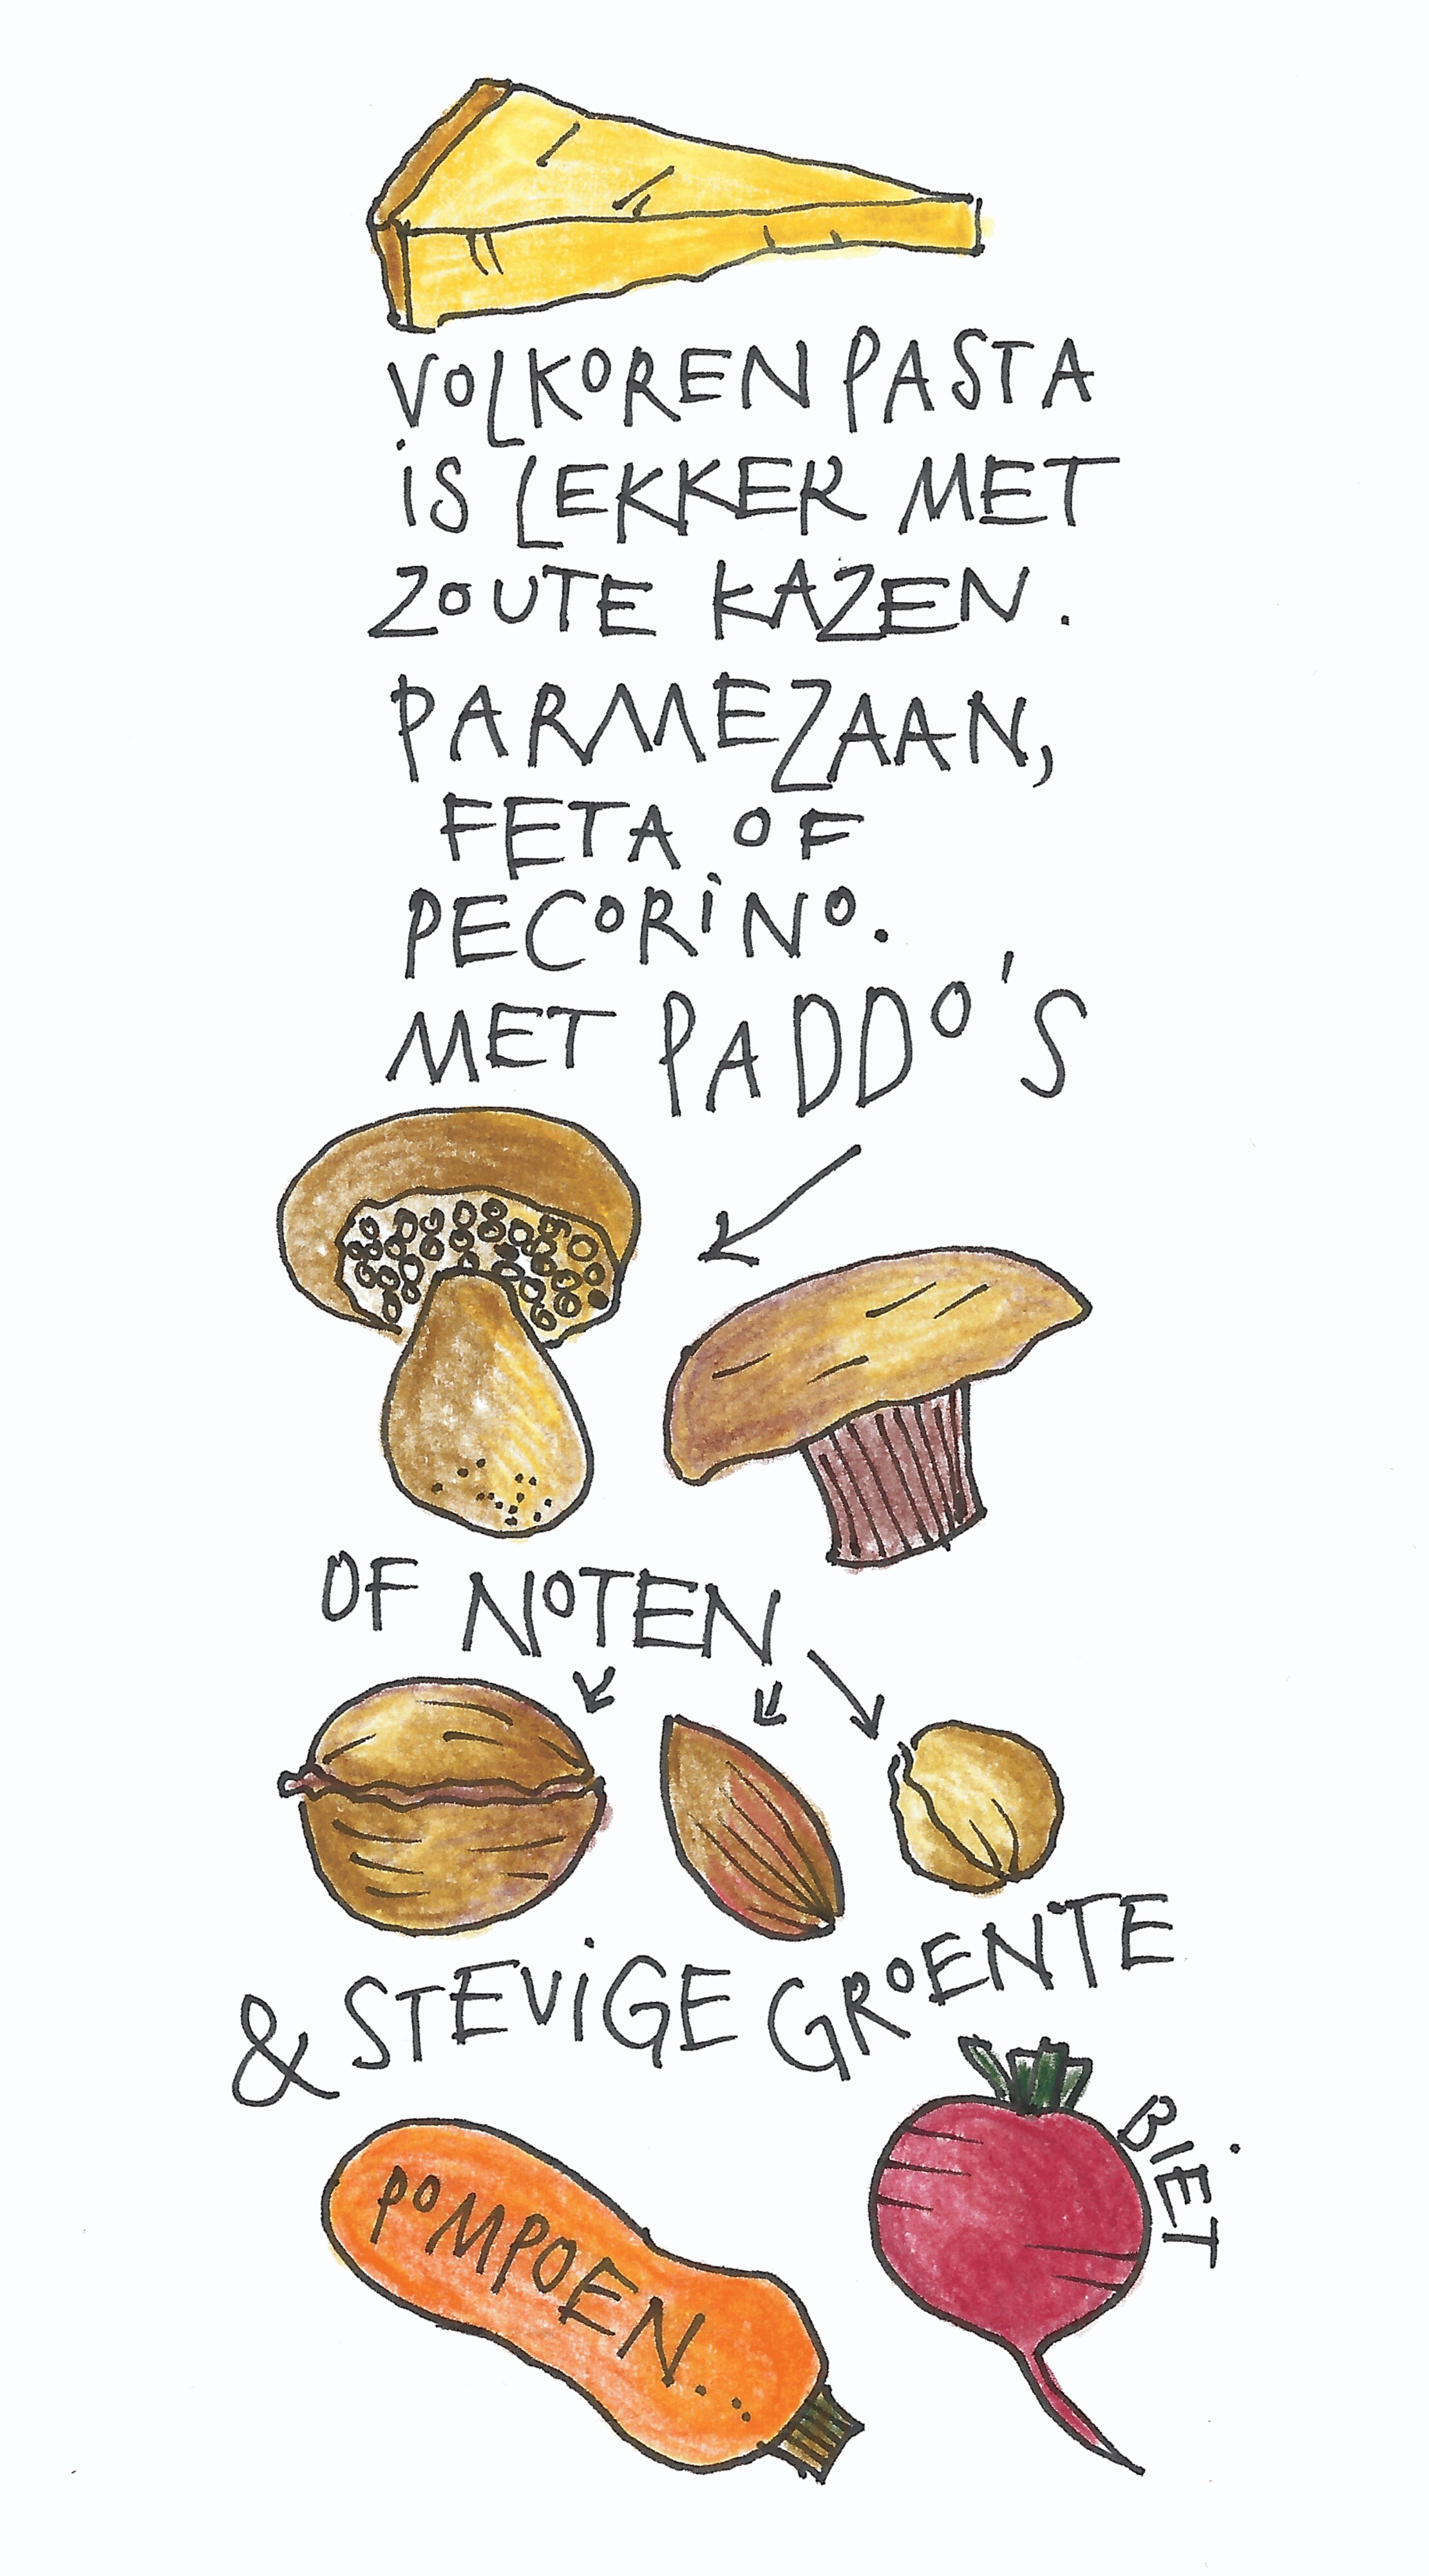 VOLKOREN PASTA
iS LEKKER MET
ZOUTE KAZEN.
PARMEZAAN,
FETA OF
PECORiNO.
MET PADDO'S
OF NOTEN
& STEViGE GROENTE
BiET
POMPOEN...